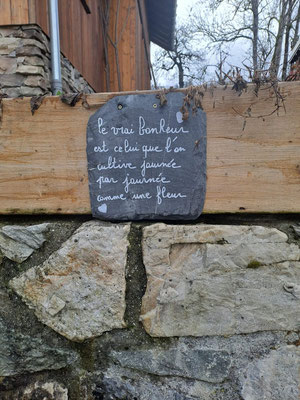 le vrai bonheur
est celui que l'on
cultive journée
par journée
comme une fleur